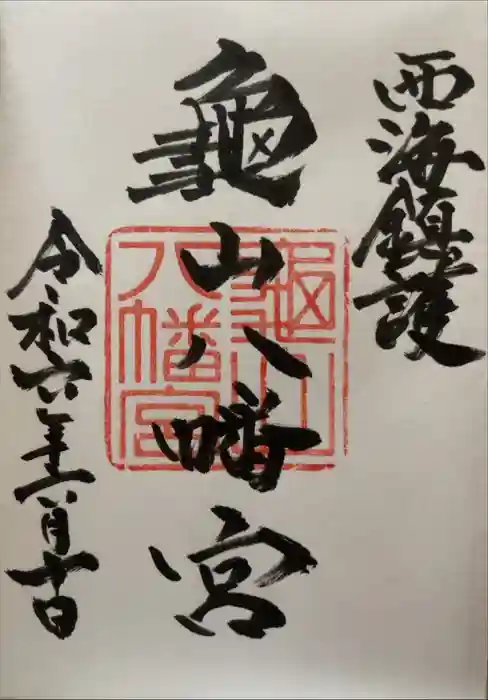 西海鎮護
龜山八幡宮
龜山
八幡宮
令和六年 月 日